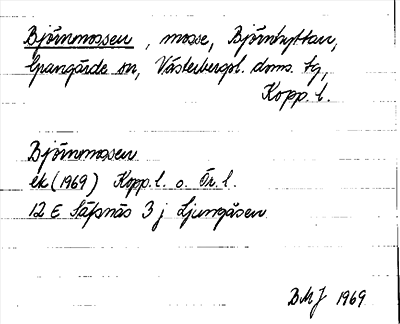 Björnmossen, mosse, Björnhyttan,
Grangärde sn, Västerbergsl. doms. tg,
Kopp. l.
Björnmossen
ek (1969) Kopp. l. o. Ör. l.
12 E Säfsnäs 3 j Ljungåsen
BMJ 1969